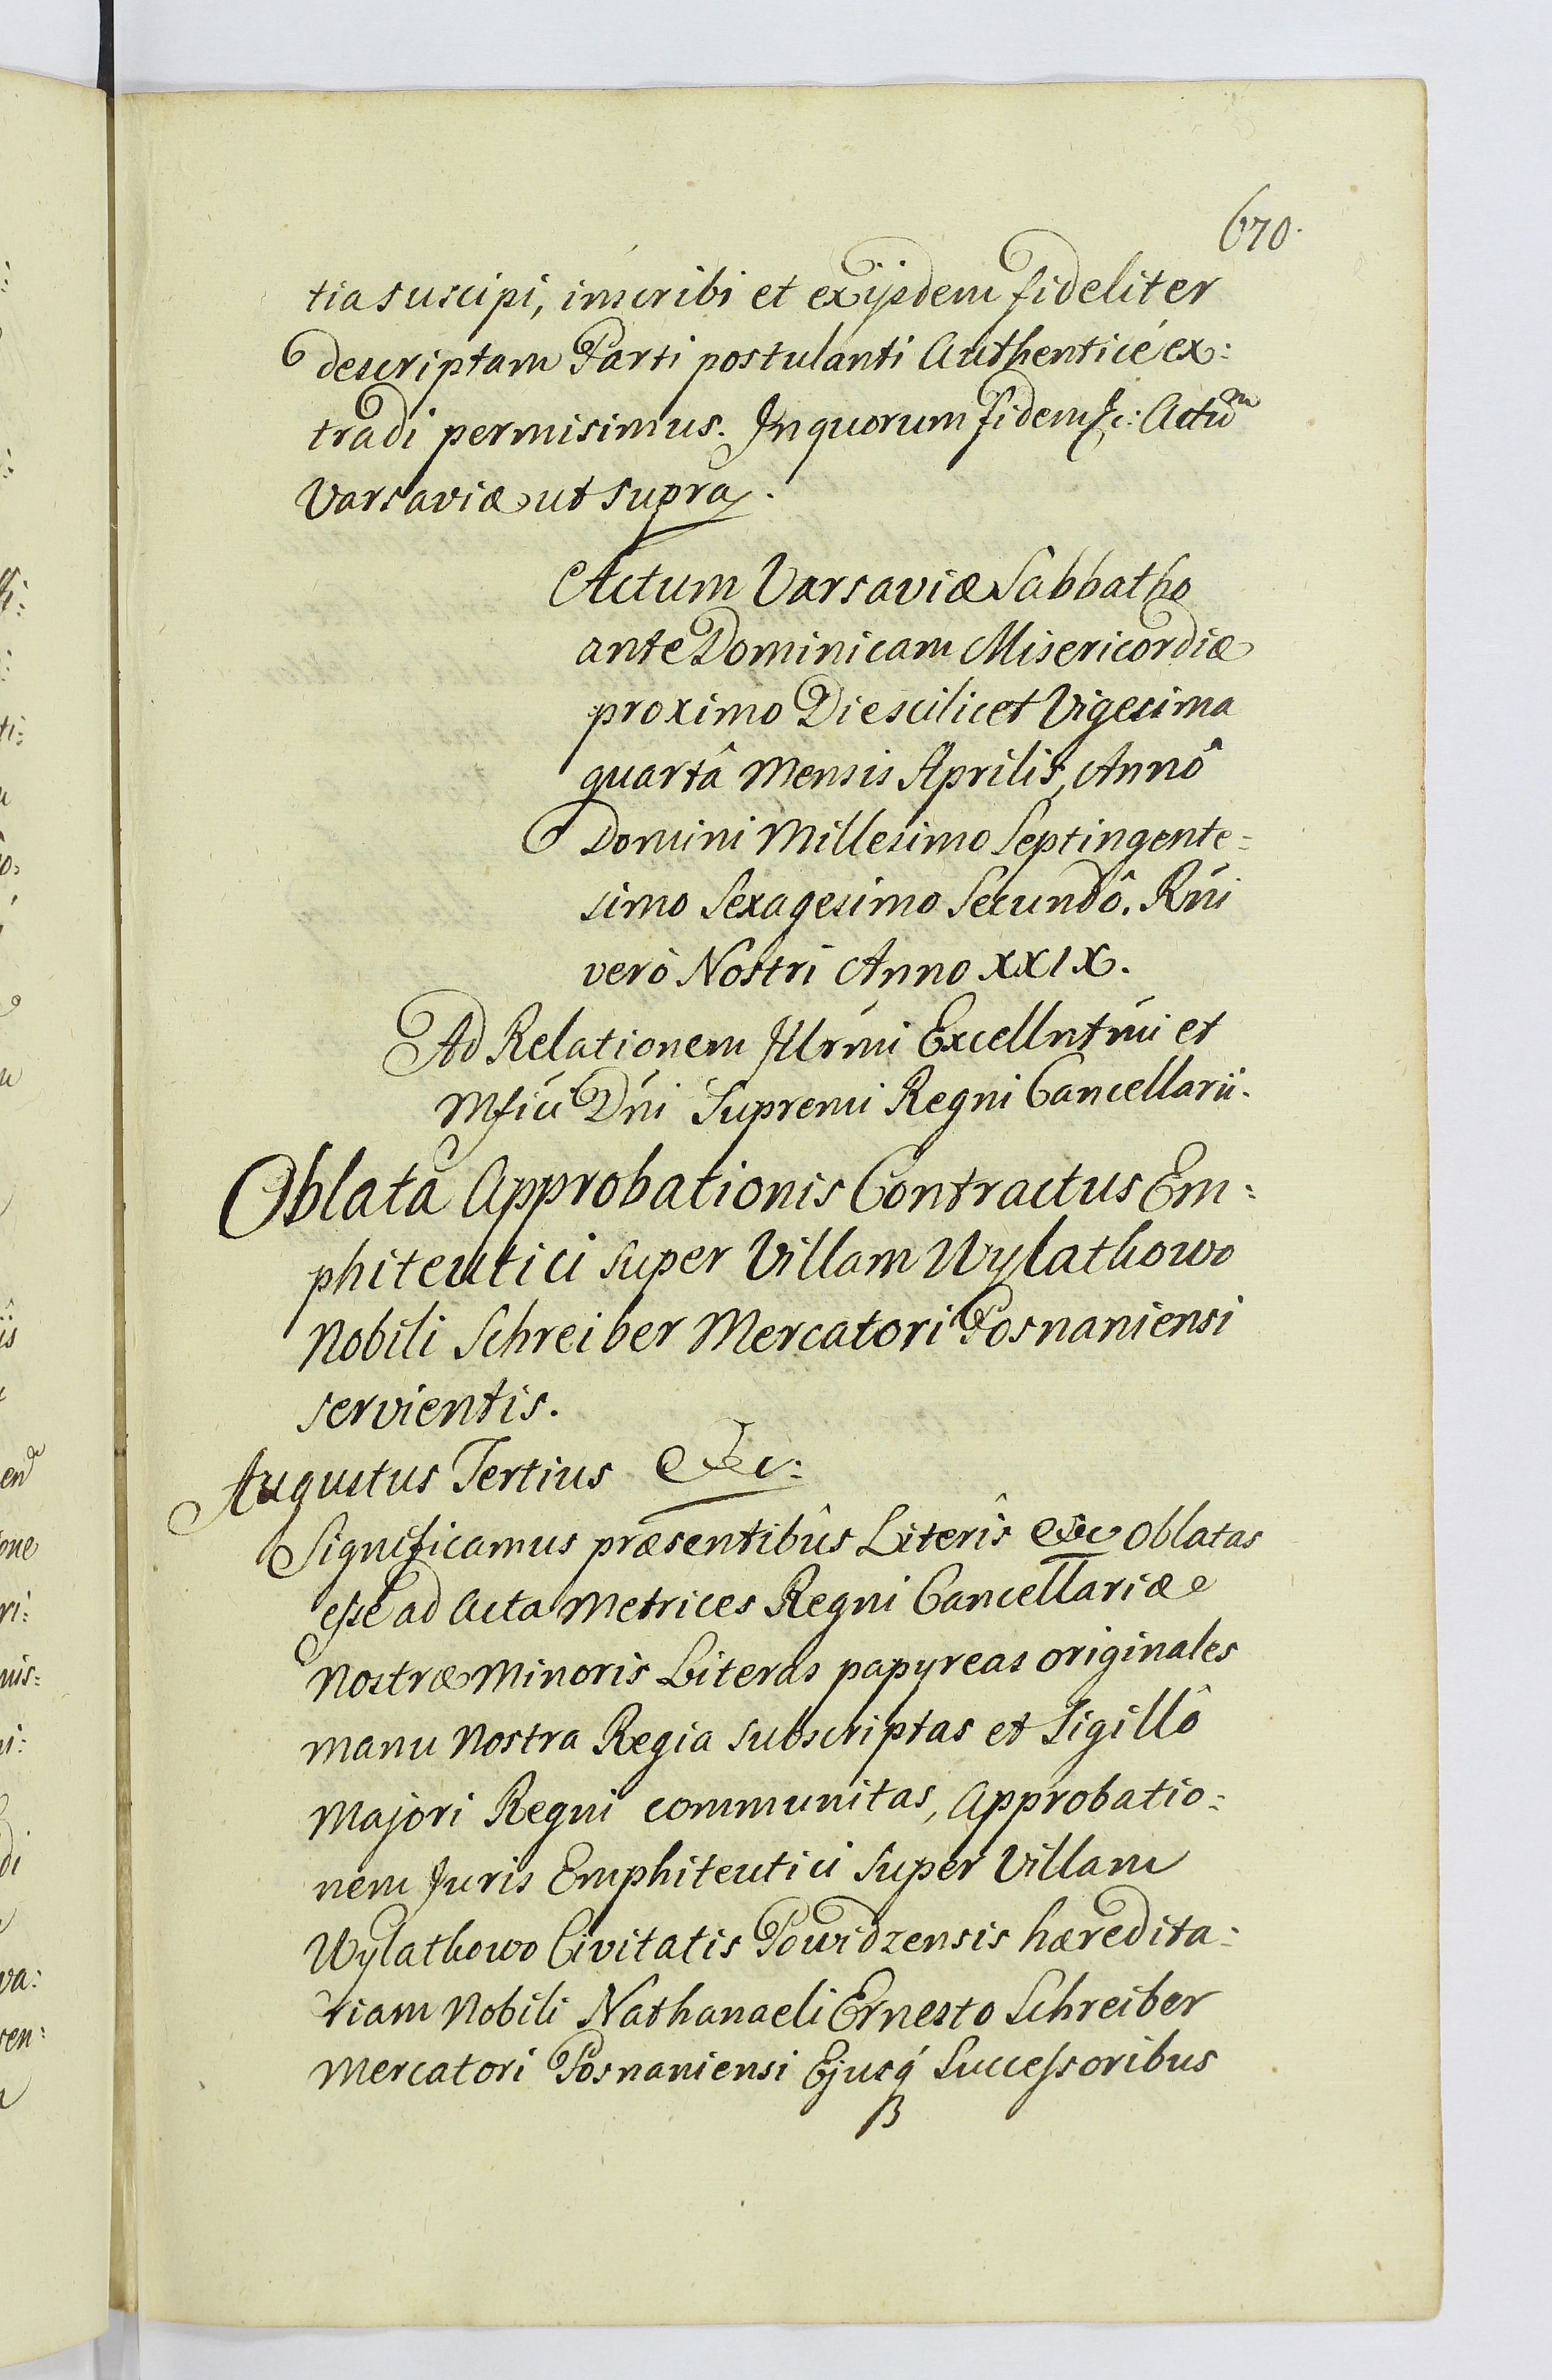 670.
tia suscipi, inscribi et ex ijsdem fideliter
descriptam Parti postulanti Authenticé ex:
tradi permisimus. In quorum fidem &c: Actũm
Varsaviæ ut supra.
Actum Varsaviæ Sabbatho
ante Dominicam Misericordiæ
proximo Die scilicet Vigesima
quartâ Mensis Aprilis, Annô
Domini Millesimo Septingente=
simo Sexagesimo Secundô. Rńi
verò Nostri Anno XXIX.
Ad Relationem Illrḿi Excellntḿi et
Mfici Dńi Supremi Regni Cancellarii.
Oblata Approbationis Contractus Em:
phiteutici super Villam Wylathowo
Nobili Schreiber Mercatori Posnaniensi
servientis.
Augustus Tertius &c:
Significamus præsentibûs Literîs &c Oblatas
esse ad Acta Metrices Regni Cancellariæ
Nostræ Minoris Literas papyreas originales
manu Nostra Regia subscriptas et Sigillô
Majori Regni communitas, Approbatio:
nem Juris Emphiteutici super Villam
Wylathowo Civitatis Powidzensis hæredita:
riam Nobili Nathanaeli Ernesto Schreiber
Mercatori Posnaniensi Ejusq́ Successoribus